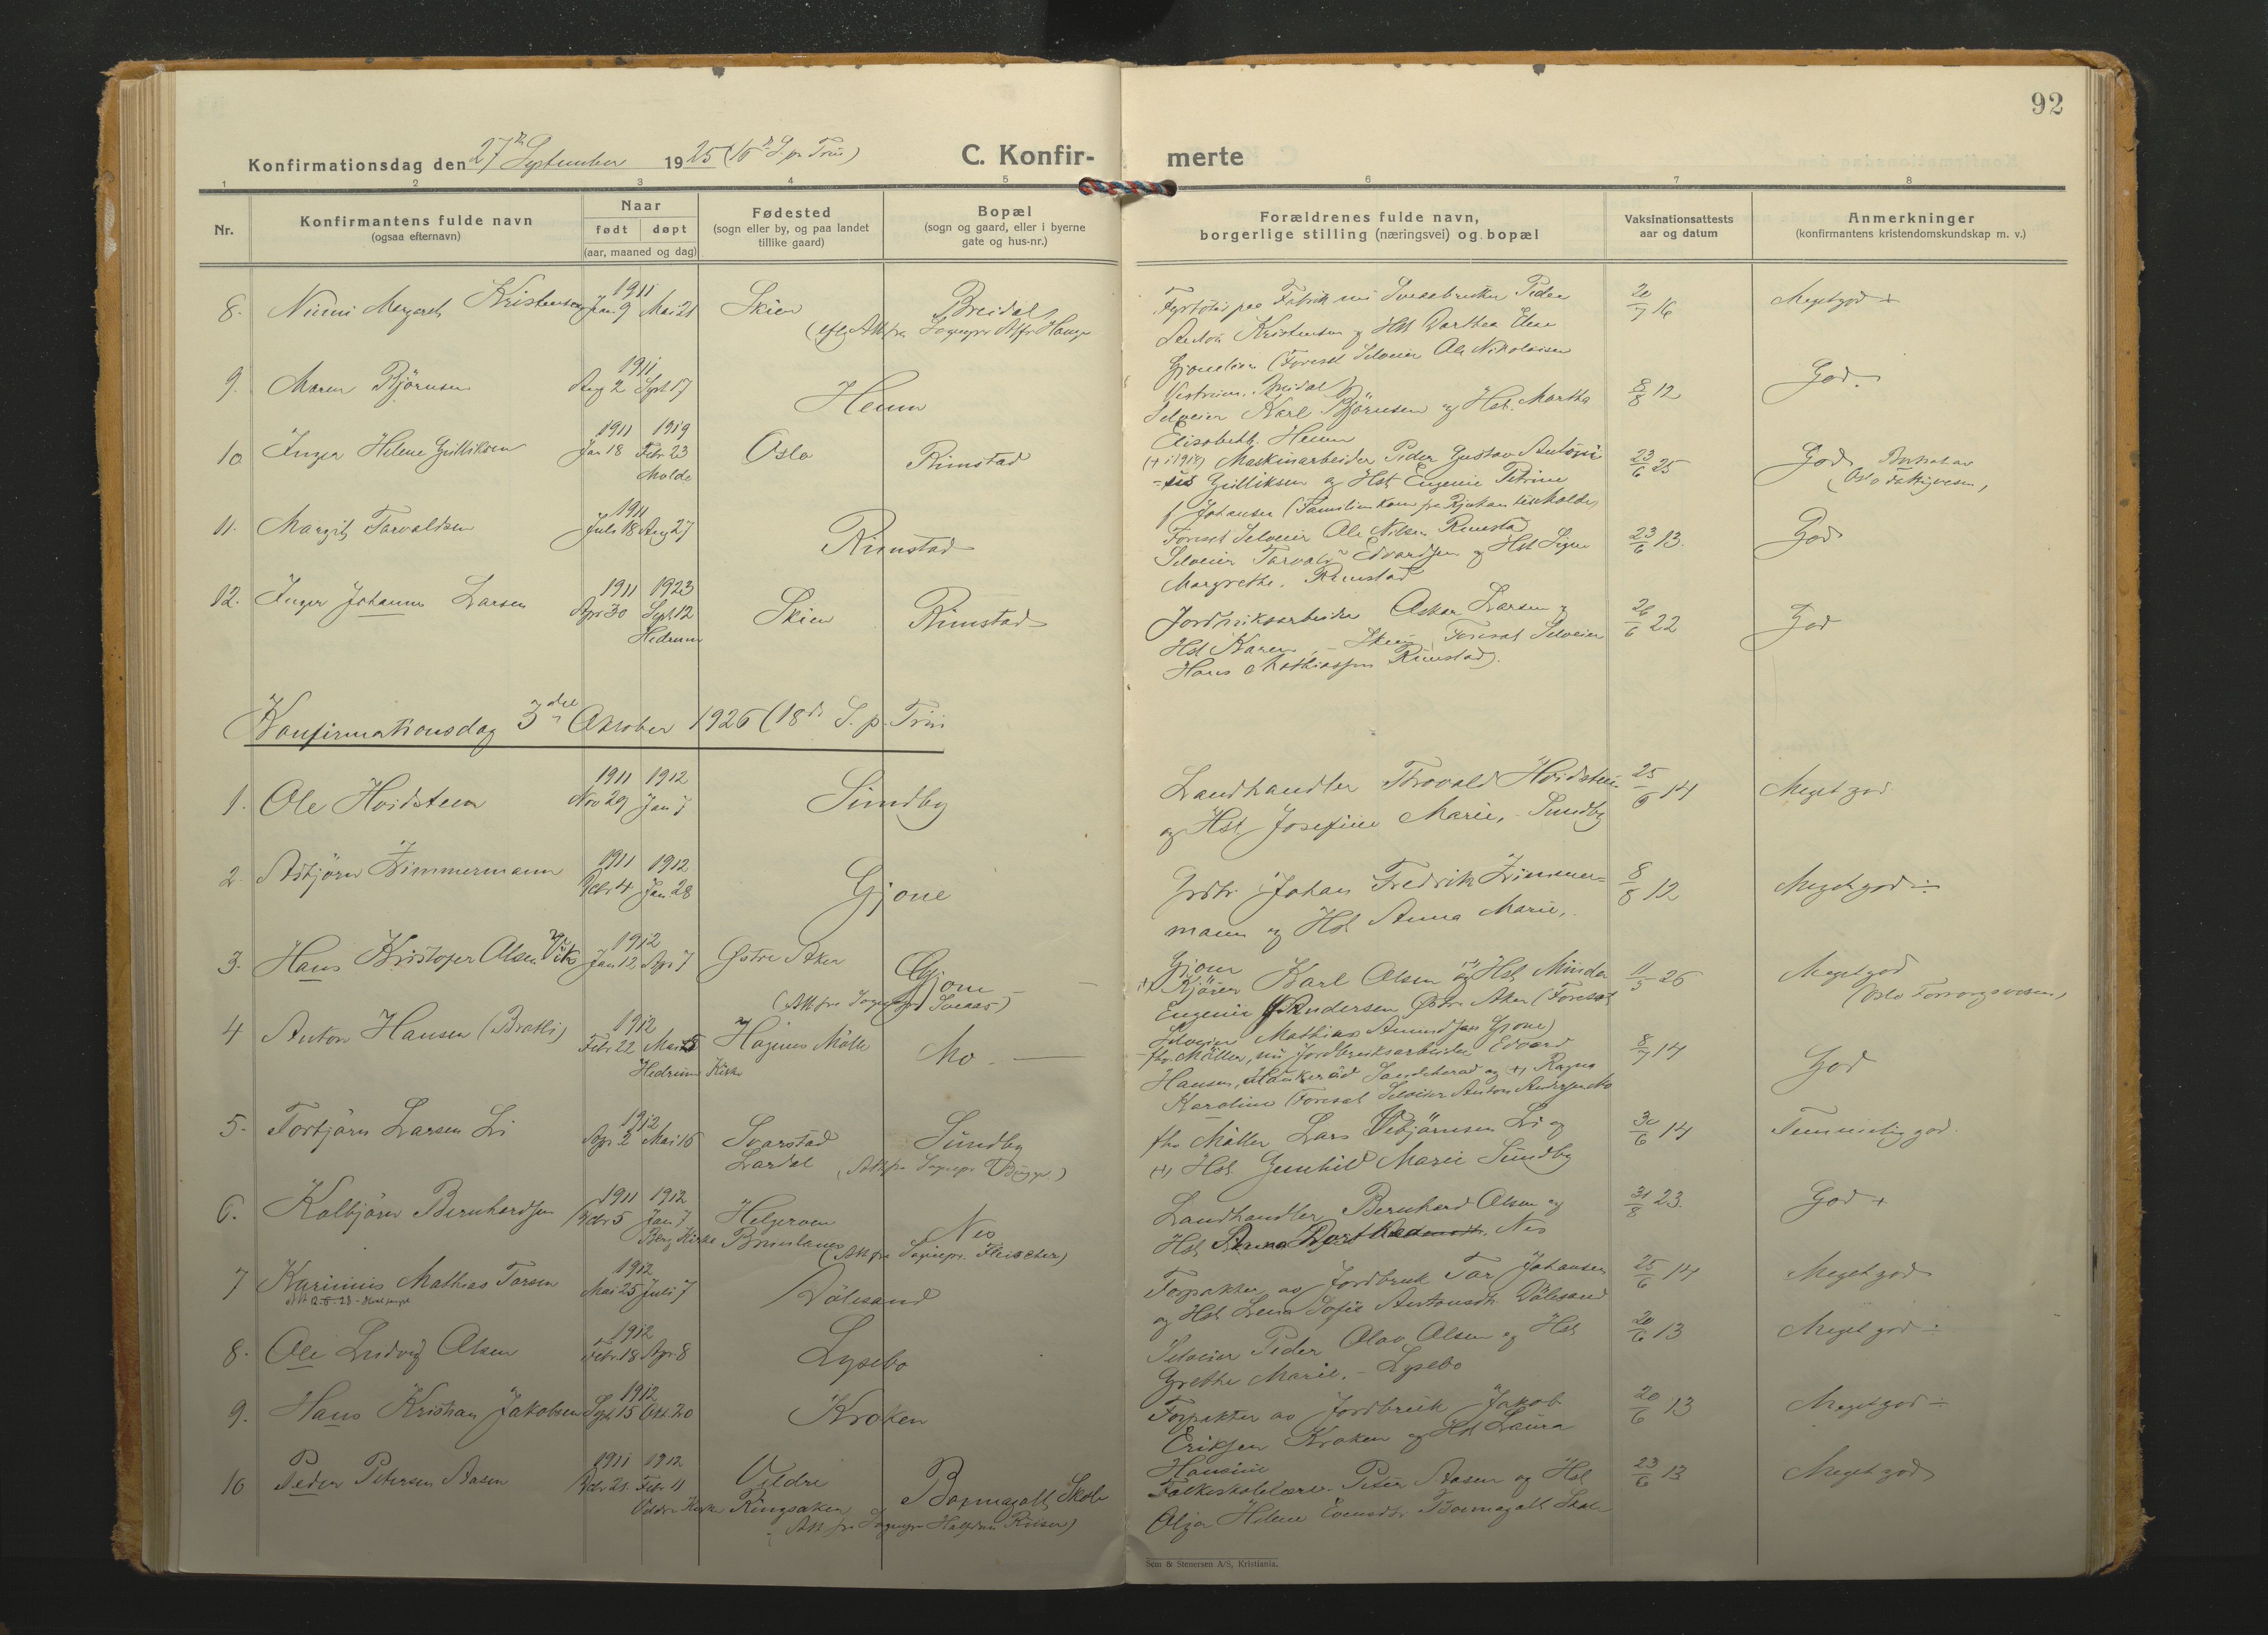 92
Konfirmationsdag den 27de September 1925 (16de S. p. Trin)
C. Konfir-
merte
1 2 3 4 5 6 7 8
Nr.
Konfirmantens fulde navn
(ogsaa efternavn)
Naar
født døpt
(aar, maaned og dag)
Fødested
(sogn eller by, og paa landet
tillike gaard)
Bopæl
(sogn og gaard, eller i byerne
gate og hus-nr.)
Forældrenes fulde navn,
borgerlige stilling (næringsvei) og bopæl
Vaksinationsattests
aar og datum
Anmerkninger
(konfirmantens kristendomskundskap m. v.)
8. Margreth Kristensen 1911 Jan 9 Mai 21 Skien Breidal
Fyrbøter paa Fabrik nu Peder
Anton Kristensen og Hst Dorthea Elene
Gjonelien (Foresat Selveier Ole Nikolaisen
Breidal)
20/7 16 Meget god +
9. Maren Bjørnsen 1911 Aug 2 Sept 17 Hem
Selveier Karl Bjørnsen og Hst. Martha
Elisabeth. Hem
8/8 12 God.
10 Inger Helene Gulliksen 1911 Jan 18 1919 Febr 23 Molde Oslo Rimstad
(+ i 1918) Maskinarbeider Peder Gustav Antoni-
us Gulliksen og Hst Eugenie Petrine
f. Johansen (Familien kom fra Rjukan til Molde)
Foresat Selveier Ole Nilsen Rimstad
23/6 25 God
11. Margit Torvaldsen 1911 Juli 18 Aug 27 Rimstad
Selveier Torvald Edvardsen og Hst Signe
Margrethe. Rimstad
23/6 13. God
12. Inger Johanne Larsen 1911 Apr 30 1923 Sept 12 Hedrum Skien Rimstad
Jordbruksarbeider Oskar Larsen og
Hst Karen, - Skien, Foresat Selveier
Hans Mathiassen Rimstad).
26/6 22 God
Konfirmationsdag 3dre Oktober 1926 (18de S. p. Trin
1. Ole Hvidsteen 1911 Nov 29 1912 Jan 7 Sundby
Landhandler Thorvald Hvidsteen
og Hst Josefine Marie, - Sundby
25/6 14 Meget god
2. Asbjørn Zimmermann 1911 Dcbr 4 1912 Jan 28 Gjone
Grdbr Johan Fredrik Zimmer-
mann og Hst Anna Marie,
Gjone
8/8 12 Meget god ÷
3. Hans Kristofer Olsen Vik 1912 Jan 12 Apr 7 Østre Aker Gjone
Kjører Karl Olsen og Hst Minda
Eugenie Andersen Østre Aker (Foresat
Selveier Mathias Amundsen Gjone)
11/5 26 Meget god
(Oslo Forsorgsvesen)
4 Anton Hansen (Bratli) 1912 Febr 22 Mai 5 Hedrum Kirke Høgnes Mølle Mo -
fhv. Møller, nu Jordbruksarbeider Edvard
Hansen, Haukerød Sandeherad og (+) Ragna
Karoline (Foresat Selveier Anton Andersen Mo
8/7 14 God
5. Torbjørn Larsen Li 1912 Apr 2 Mai 16 Svarstad
Lardal Sundby
fhv Møller Lars Vebjørnsen Li og
(+) Hst. Gunhild Marie Sundby
30/6 14 Temmelig god
6. Kolbjørn Bernhardsen 1911 Dcbr 5 1912 Jan 7 Berg Kirke Helgeroen
Brunlanes Nes
(Att fra Sognepr. Fleischer)
Landhandler Bernhard Olsen og
Hst Nes
31/8 23. God +
7 Karinius Mathias Torsen 1912 Mai 25 Juli 7 Dølesand
Forpakter av Jordbruk Tor Johansen
og Hst Lena Sofie Antonsdt. Dølesand
25/6 14 Meget god
8. Ole Ludvig Olsen 1912 Febr 18 Apr 8 Lysebo
Selveier Peder Olav Olsen og Hst
Grethe Marie, - Lysebo
20/6 13 Meget god ÷
9. Hans Kristian Jakobsen 1912 Sept 15 Okt 20 Kroken
Forpakter av Jordbruk Jakob
Eriksen Kroken og Hst Laura
Hansine
20/6 13 Meget god ÷
10 Peder Petersen Aasen 1911 Dcbr 21 1912 Febr 11 Veldre Kirke Veldre
Ringsaker Skole
Folkeskolelærer Peter Aasen og Hst
Olga Helene Evensdt. Skole
23/6 13 Meget god
Sem & Stenersen A/S, Kristiania.